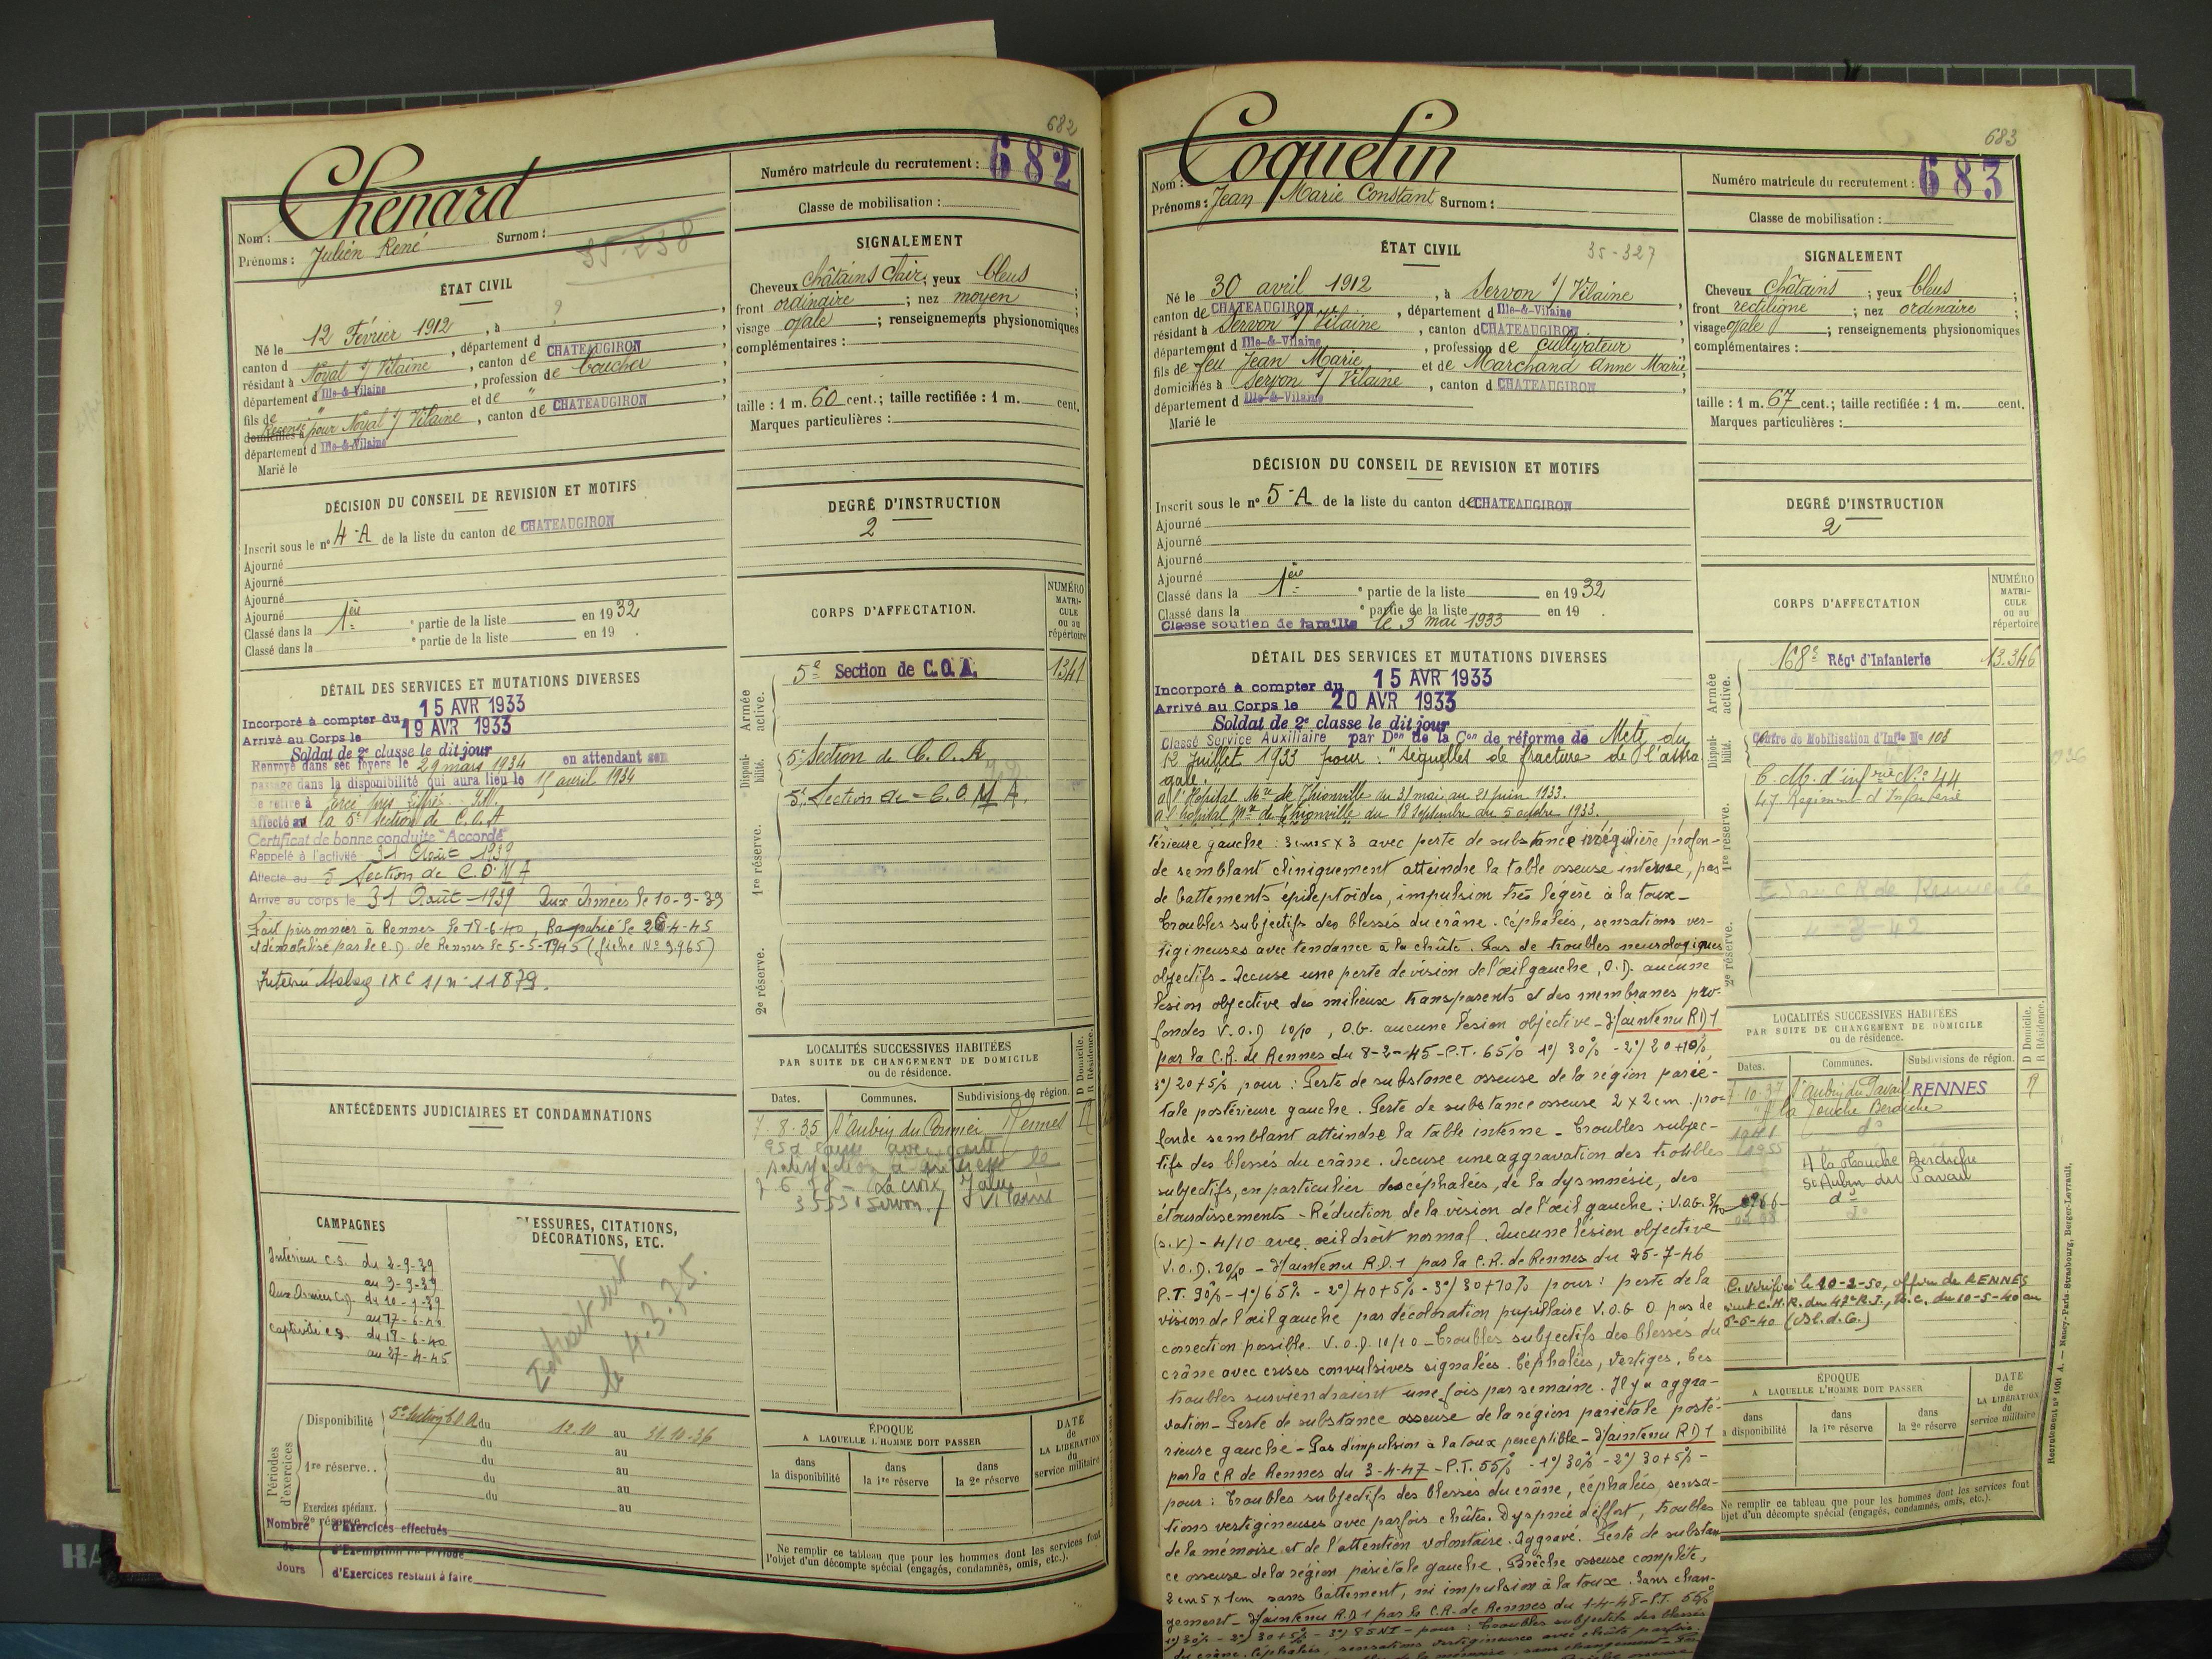 682
Chenard
Numéro matricule du recrutement : 682
Nom :
Prénoms : Julien René Surnom :
35-238
Classe de mobilisation :
ÉTAT CIVIL
Né le 12 Février 1912, à ?
canton d , département d
résidant à Noyal s/ Vilaine, canton de CHATEAUGIRON
département d Ille-&-Vilaine, profession de boucher
fils de " et de "
domiciliés à pour Noyal s/ Vilaine, canton de CHATEAUGIRON
département d Ille-&-Vilaine
Marié le
SIGNALEMENT
Cheveux châtains clair; yeux bleus;
front ordinaire; nez moyen;
visage ovale; renseignements physionomiques
complémentaires :
taille : 1 m. 60 cent.; taille rectifiée : 1 m. cent.
Marques particulières :
DÉCISION DU CONSEIL DE REVISION ET MOTIFS
Inscrit sous le n° 4-A de la liste du canton de CHATEAUGIRON
Ajourné
Ajourné
Ajourné
Ajourné
Classé dans la 1ère partie de la liste en 1932
Classé dans la e partie de la liste en 19 .
DEGRÉ D'INSTRUCTION
2
DÉTAIL DES SERVICES ET MUTATIONS DIVERSES
Incorporé à compter du 15 AVR 1933
Arrivé au Corps le 19 AVR 1933
Soldat de 2e classe le dit jour
Renvoyé dans ses foyers le 29 mars 1934 en attendant son
passage dans la disponibilité qui aura lieu le 15 avril 1934
Se retire à
Affecté à la 5e Section de C.O.A
Certificat de bonne conduite "Accordé"
Rappelé à l'activité 31 Août 1939
Affecté au 5 Section de C.O.M.A
Arrivé au corps le 31 Août 1939 Aux Armées le 10-9-39
Fait prisonnier à Rennes le 18-6-40, Rapatrié le 26-4-45
et démobilisé par le C.D. de Rennes le 5-5-1945 (fiche No 3.965)
Interné Stalag IX C / n° 11879.
CORPS D'AFFECTATION.
NUMÉRO MATRICULE ou au répertoire
Armée active.
5e Section de C.O.A. 1341
Disponibilité.
5e Section de C.O.A
5e Section de C.O.M.A.
1re réserve.
2e réserve.
ANTÉCÉDENTS JUDICIAIRES ET CONDAMNATIONS
LOCALITÉS SUCCESSIVES HABITÉES
PAR SUITE DE CHANGEMENT DE DOMICILE
ou de résidence.
D Domicile. R Résidence.
Dates. Communes. Subdivisions de région.
7-8-35 St Aubin du Cormier Rennes R
35530 Servon s/ Vilaine
CAMPAGNES
Intérieur C.S. du 2-9-39
au 9-9-39
Aux Armées C.D. du 10-9-39
au 17-6-40
Captivité C.S. du 18-6-40
au 27-4-45
BLESSURES, CITATIONS,
DÉCORATIONS, ETC.
le 4.3.75.
Périodes d'exercices
Disponibilité 5e Section C.O.A. du 12.10 au 31.10.36
du au
1re réserve.. du au
du au
Exercices spéciaux. du au
2e réserve
Nombre de Jours
d'Exercices effectués
d'Exemption de Période
d'Exercices restant à faire
ÉPOQUE
A LAQUELLE L'HOMME DOIT PASSER
dans la disponibilité
dans la 1re réserve
dans la 2e réserve
DATE de LA LIBÉRATION du service militaire
Ne remplir ce tableau que pour les hommes dont les services font
l'objet d'un décompte spécial (engagés, condamnés, omis, etc.).
683
Coquelin
Numéro matricule du recrutement : 683
Nom :
Prénoms : Jean Marie Constant Surnom :
Classe de mobilisation :
ÉTAT CIVIL
35-327
Né le 30 avril 1912, à Servon s/ Vilaine
canton de CHATEAUGIRON, département d Ille-&-Vilaine
résidant à Servon s/ Vilaine, canton d CHATEAUGIRON
département d Ille-&-Vilaine, profession de cultivateur
fils de feu Jean Marie et de Marchand Anne Marie
domiciliés à Servon s/ Vilaine, canton d CHATEAUGIRON
département d Ille-&-Vilaine
Marié le
SIGNALEMENT
Cheveux châtains; yeux bleus;
front rectiligne; nez ordinaire;
visage ovale; renseignements physionomiques
complémentaires :
taille : 1 m. 67 cent.; taille rectifiée : 1 m. cent.
Marques particulières :
DÉCISION DU CONSEIL DE REVISION ET MOTIFS
Inscrit sous le n° 5-A de la liste du canton de CHATEAUGIRON
Ajourné
Ajourné
Ajourné
Ajourné
Classé dans la 1ère partie de la liste en 1932
Classé dans la e partie de la liste en 19 .
Classé soutien de famille le 3 mai 1933
DEGRÉ D'INSTRUCTION
2
DÉTAIL DES SERVICES ET MUTATIONS DIVERSES
Incorporé à compter du 15 AVR 1933
Arrivé au Corps le 20 AVR 1933
Soldat de 2e classe le dit jour
Classé Service Auxiliaire par Don de la Con de réforme de Metz du
12 Juillet 1933 pour : "séquelles de fracture de l'astra
gale."
a l'Hôpital Mre de Thionville du 31 mai au 21 juin 1933.
a l'hôpital Mre de Thionville du 18 septembre au 5 octobre 1933.
térieure gauche : 3cm5 x 3 avec perte de substance irrégulière profon-
de semblant cliniquement atteindre la table osseuse interne, pas
de battements épileptoïdes, impulsion très légère à la toux_
Troubles subjectifs des blessés du crâne. Céphalées, sensations ver-
tigineuses avec tendance à la chûte. Pas de troubles neurologiques
objectifs_ Accuse une perte de vision de l'œil gauche, O.D. aucune
lésion objective des milieux transparents et des membranes pro-
fondes V.O.D 10/10, O.G. aucune lésion objective_ Maintenu RD1
par la C.R. de Rennes du 8-2-45_P.T. 65% 1°) 30% - 2°) 20+10%
3°) 20+5% pour : Perte de substance osseuse de la région parié-
tale postérieure gauche. Perte de substance osseuse 2 x 2cm. pro-
fonde semblant atteindre la table interne_ Troubles subjec-
tifs des blessés du crâne. Accuse une aggravation des troubles
subjectifs, en particulier des céphalées, de la dysmnésie, des
étourdissements_ Réduction de la vision de l'œil gauche : V.O.G.
(s.v) - 4/10 avec œil droit normal. Aucune lésion objective
V.O.D. 10/10 _ Maintenu R.D.1 par la C.R. de Rennes du 25-7-46
P.T. 90% _ 1°) 65% - 2°) 40+5% - 3°) 30+10% pour : perte de la
vision de l'œil gauche par décoloration pupillaire V.O.G 0 pas de
correction possible. V.O.D. 10/10 _ Troubles subjectifs des blessés du
crâne avec crises convulsives signalées. Céphalées, vertiges. Ces
troubles surviendraient une fois par semaine. Il y a aggra-
vation_ Perte de substance osseuse de la région pariétale posté-
rieure gauche_ Pas d'impulsion à la toux perceptible_ Maintenu RD1
par la CR de Rennes du 3-4-47 _ P.T. 55% - 1°) 30% - 2°) 30+5% -
pour : Troubles subjectifs des blessés du crâne, céphalées, sensa-
tions vertigineuses avec parfois chûtes. Dyspnée d'effort, troubles
de la mémoire et de l'attention volontaire. Aggravé. Perte de substan
ce osseuse de la région pariétale gauche. Brèche osseuse complète,
2cm5 x 1cm sans battement, ni impulsion à la toux. Sans chan-
gement_ Maintenu R.D.1 par la C.R. de Rennes du 1-4-48_P.T. 55%
1°) 30% - 2°) 30+5% - 3°) 85 NI - pour : Troubles subjectifs des blessés
du crâne. Céphalées, sensations vertigineuses avec chûte parfois.
CORPS D'AFFECTATION
NUMÉRO MATRICULE ou au répertoire
Armée active.
168e Régt d'Infanterie 13.346
Disponibilité.
Centre de Mobilisation d'Inf. No 108
C.M. d'infrie No 44
47 Régiment d'Infanterie
1re réserve.
2e réserve.
LOCALITÉS SUCCESSIVES HABITÉES
PAR SUITE DE CHANGEMENT DE DOMICILE
ou de résidence.
D Domicile. R Résidence.
Dates. Communes. Subdivisions de région.
7-10-37 St Aubin du Pavail RENNES R
la Touche Berdiche
1941 d°
1955
A la Touche Berdiche
St Aubin du Pavail
1966 d°
d°
C. vérifiée le 10-2-50, offre de RENNES
C.H.R. du 47e R.I., U.C. du 10-5-40 au
ÉPOQUE
A LAQUELLE L'HOMME DOIT PASSER
dans
a disponibilité
dans
la 1re réserve
dans
la 2e réserve
DATE
de
LA LIBÉRATION
du
service militaire
Ne remplir ce tableau que pour les hommes dont les services font
bjet d'un décompte spécial (engagés, condamnés, omis, etc.).
Recrutement n° 1001 A. — Nancy-Paris-Strasbourg, Berger-Levrault.